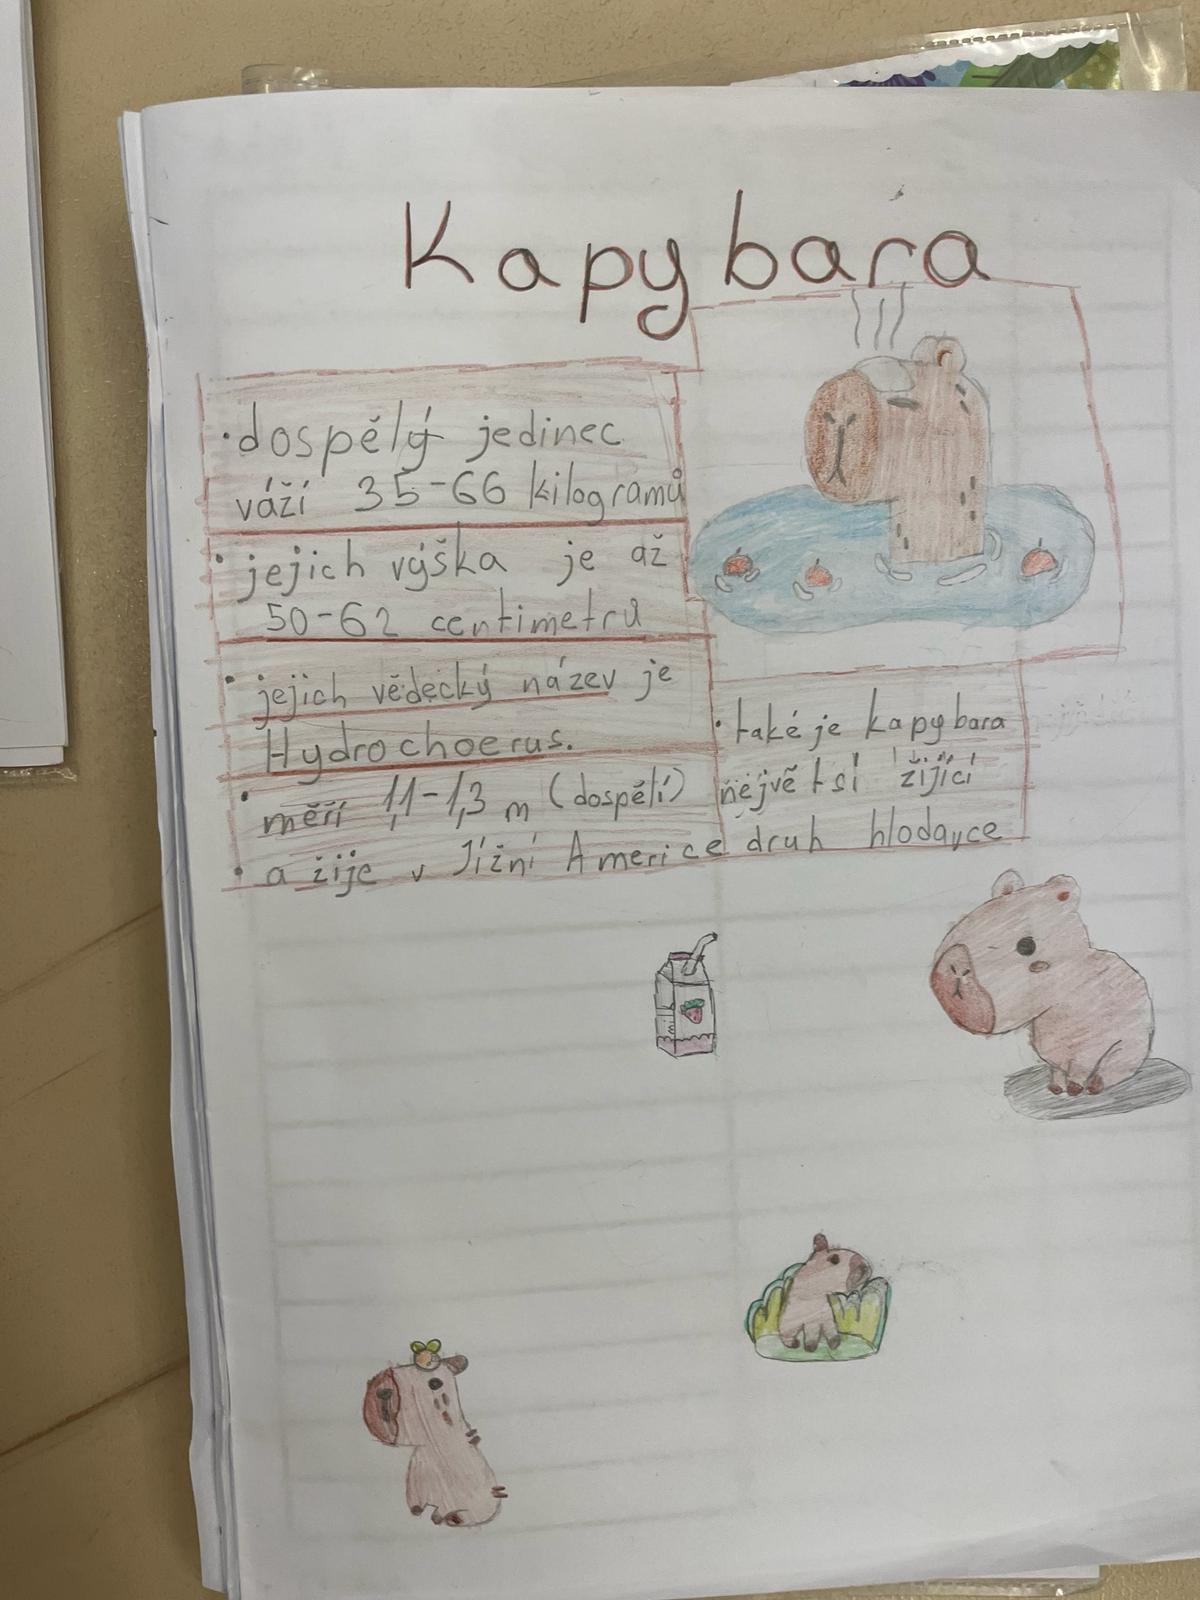 Kapybara
• dospělý jedinec
váží 35-66 kilogramů
• jejich výška je až
50-62 centimetrů
• jejich vědecký název je
Hydrochoerus.
• měří 1,1-1,3 m (dospělí)
• a žije v Jižní Americe
• také je kapybara
největsí žijící
druh hlodavce
milk